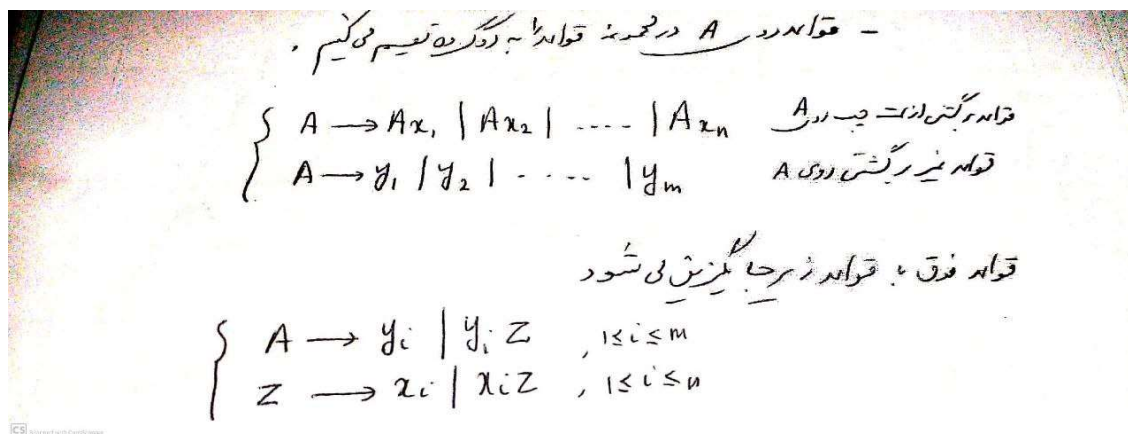 - قواعد روی A در مجموعه قواعد را به دو گروه تقسیم می کنیم .
A → Ax₁ | Ax₂ | .... | Axₙ قواعد برگشتی از سمت چپ روی A
A → y₁ | y₂ | ..... | yₘ قواعد غیر برگشتی روی A
قواعد فوق با قواعد زیر جایگزین می شود
A → yᵢ | yᵢ Z , 1≤i≤m
Z → xᵢ | xᵢZ , 1≤i≤n
CS